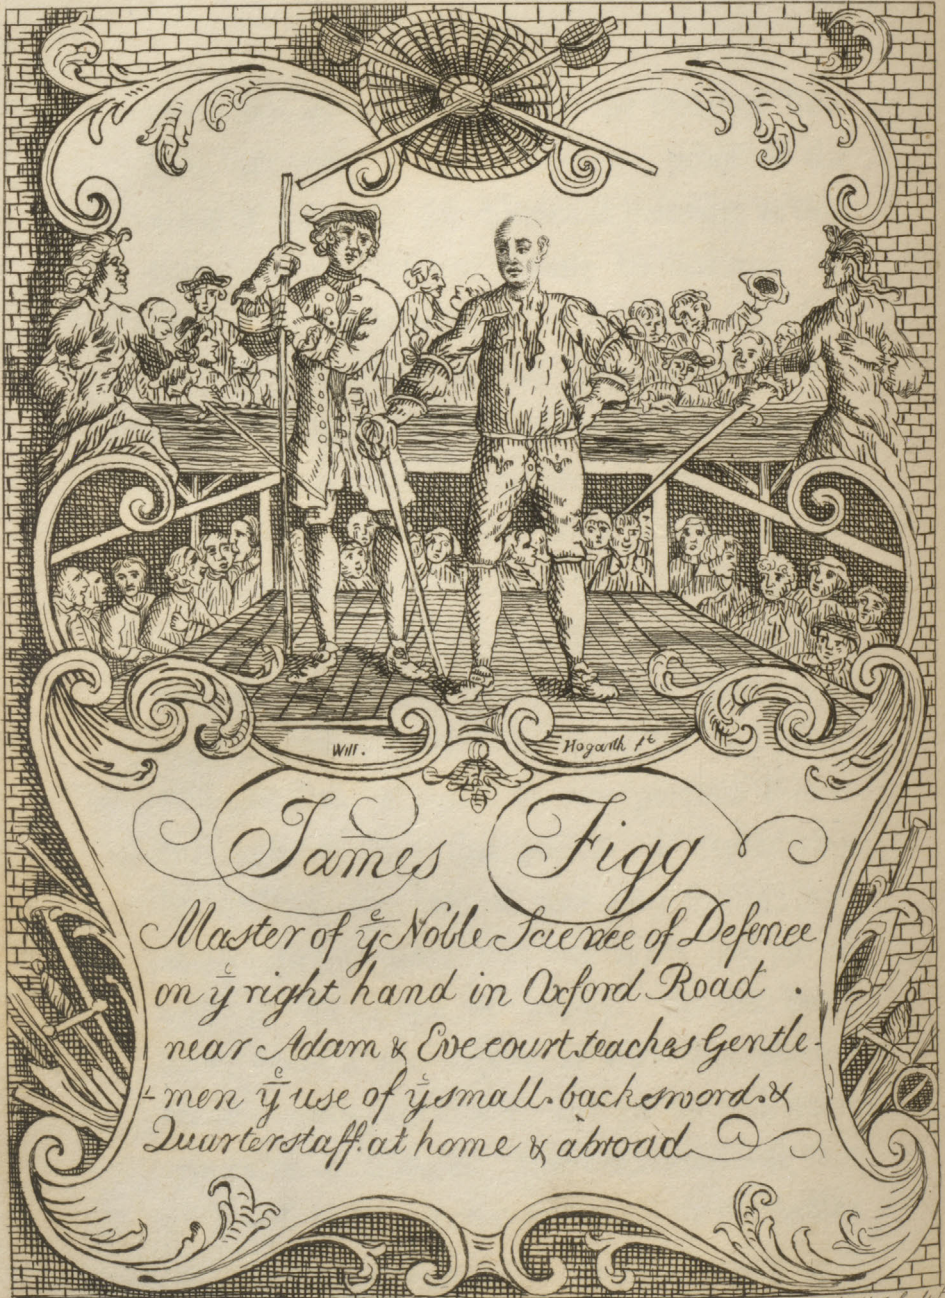 Will.
Hogarth ft
James Figg
Master of yͤ Noble Science of Defence
on yͤ right hand in Oxford Road.
near Adam & Eve court. teaches Gentle-
-men yͤ use of yͤ small. backsword. &
Quarterstaff. at home & abroad